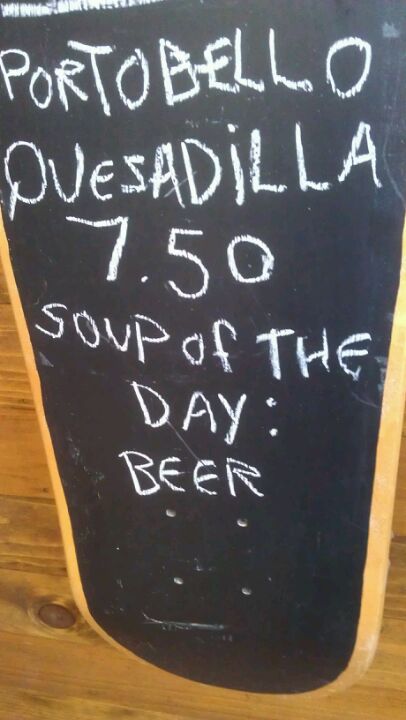 PORTOBELLO
QUESADiLLA
7.50
SOUP Of THE
DAY:
BEER